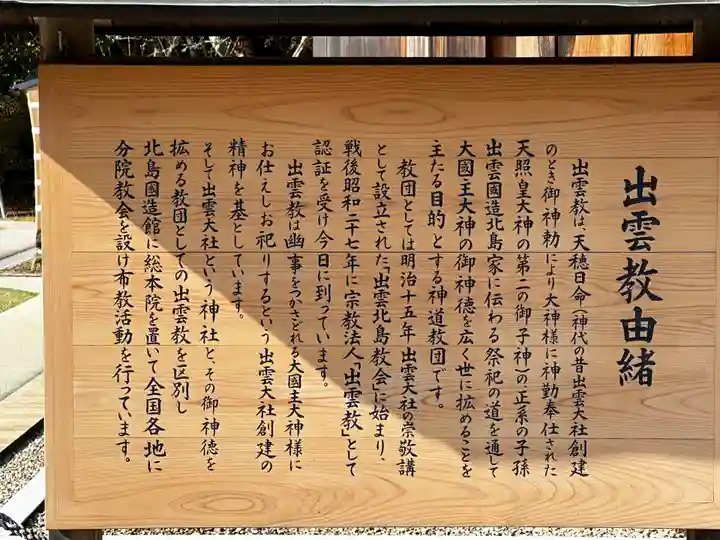 出雲教由緒
出雲教は、天穂日命(神代の昔出雲大社創建
のとき御神勅により大神様に神勤奉仕された
天照皇大神の第二の御子神)の正系の子孫
出雲國造北島家に伝わる祭祀の道を通して
大國主大神の御神徳を広く世に拡めることを
主たる目的とする神道教団です。
教団としては明治十五年出雲大社の崇敬講
として設立された「出雲北島教会」に始まり、
戦後昭和二十七年に宗教法人「出雲教」として
認証を受け今日に到っています。
出雲教は幽事をつかさどれる大國主大神様に
お仕えしお祀りするという出雲大社創建の
精神を基としています。
そして出雲大社という神社と、その御神徳を
拡める教団としての出雲教を区別し
北島國造館に総本院を置いて全国各地に
分院教会を設け布教活動を行っています。